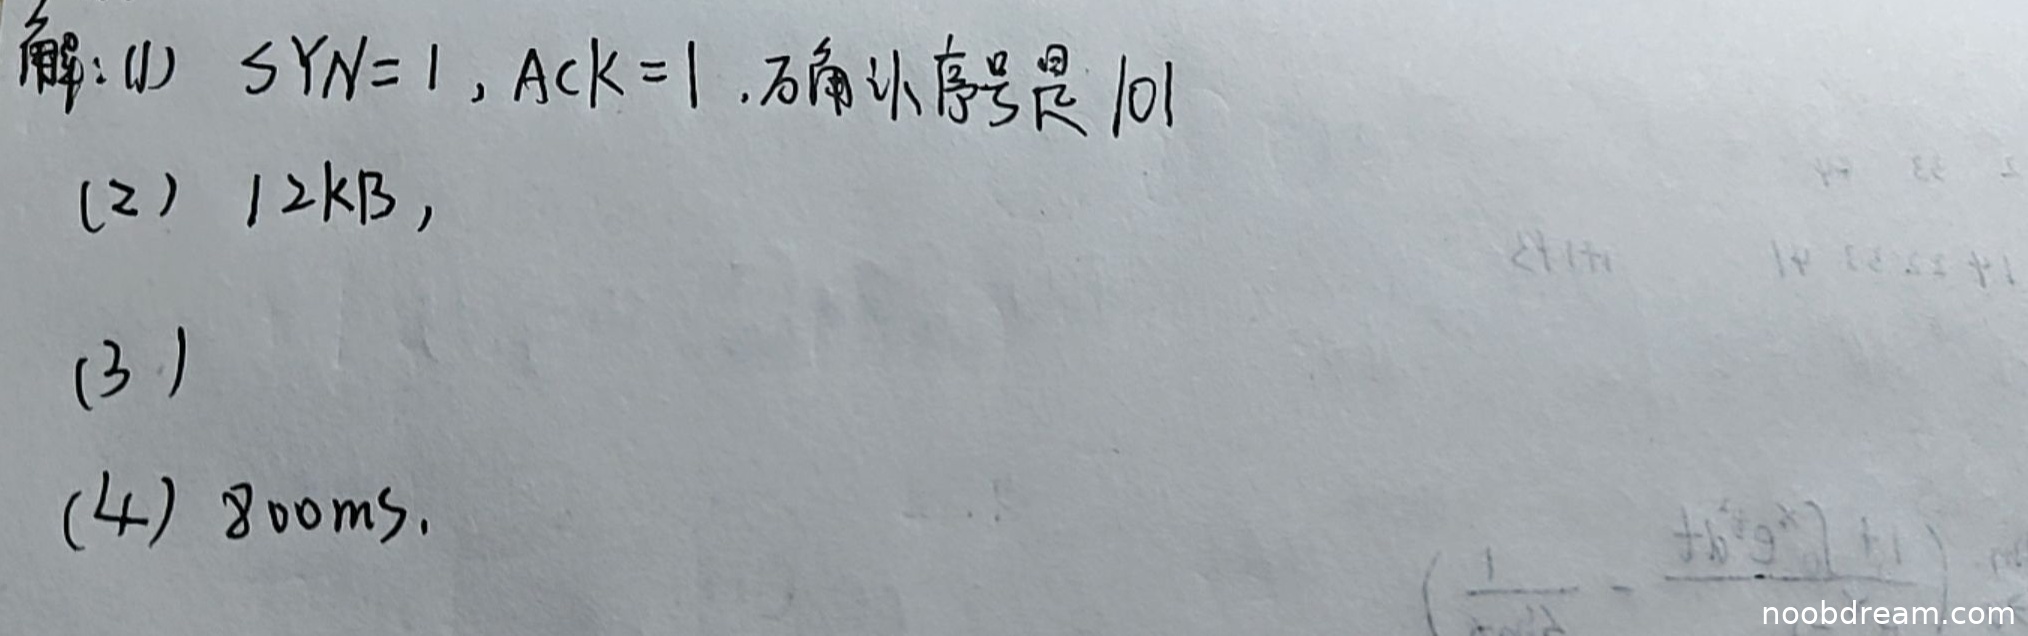 解:(1) SYN=1,ACK=1.万确认序号是 101
(2) 12KB,
(3)
(4) 800ms.
noobdream.com